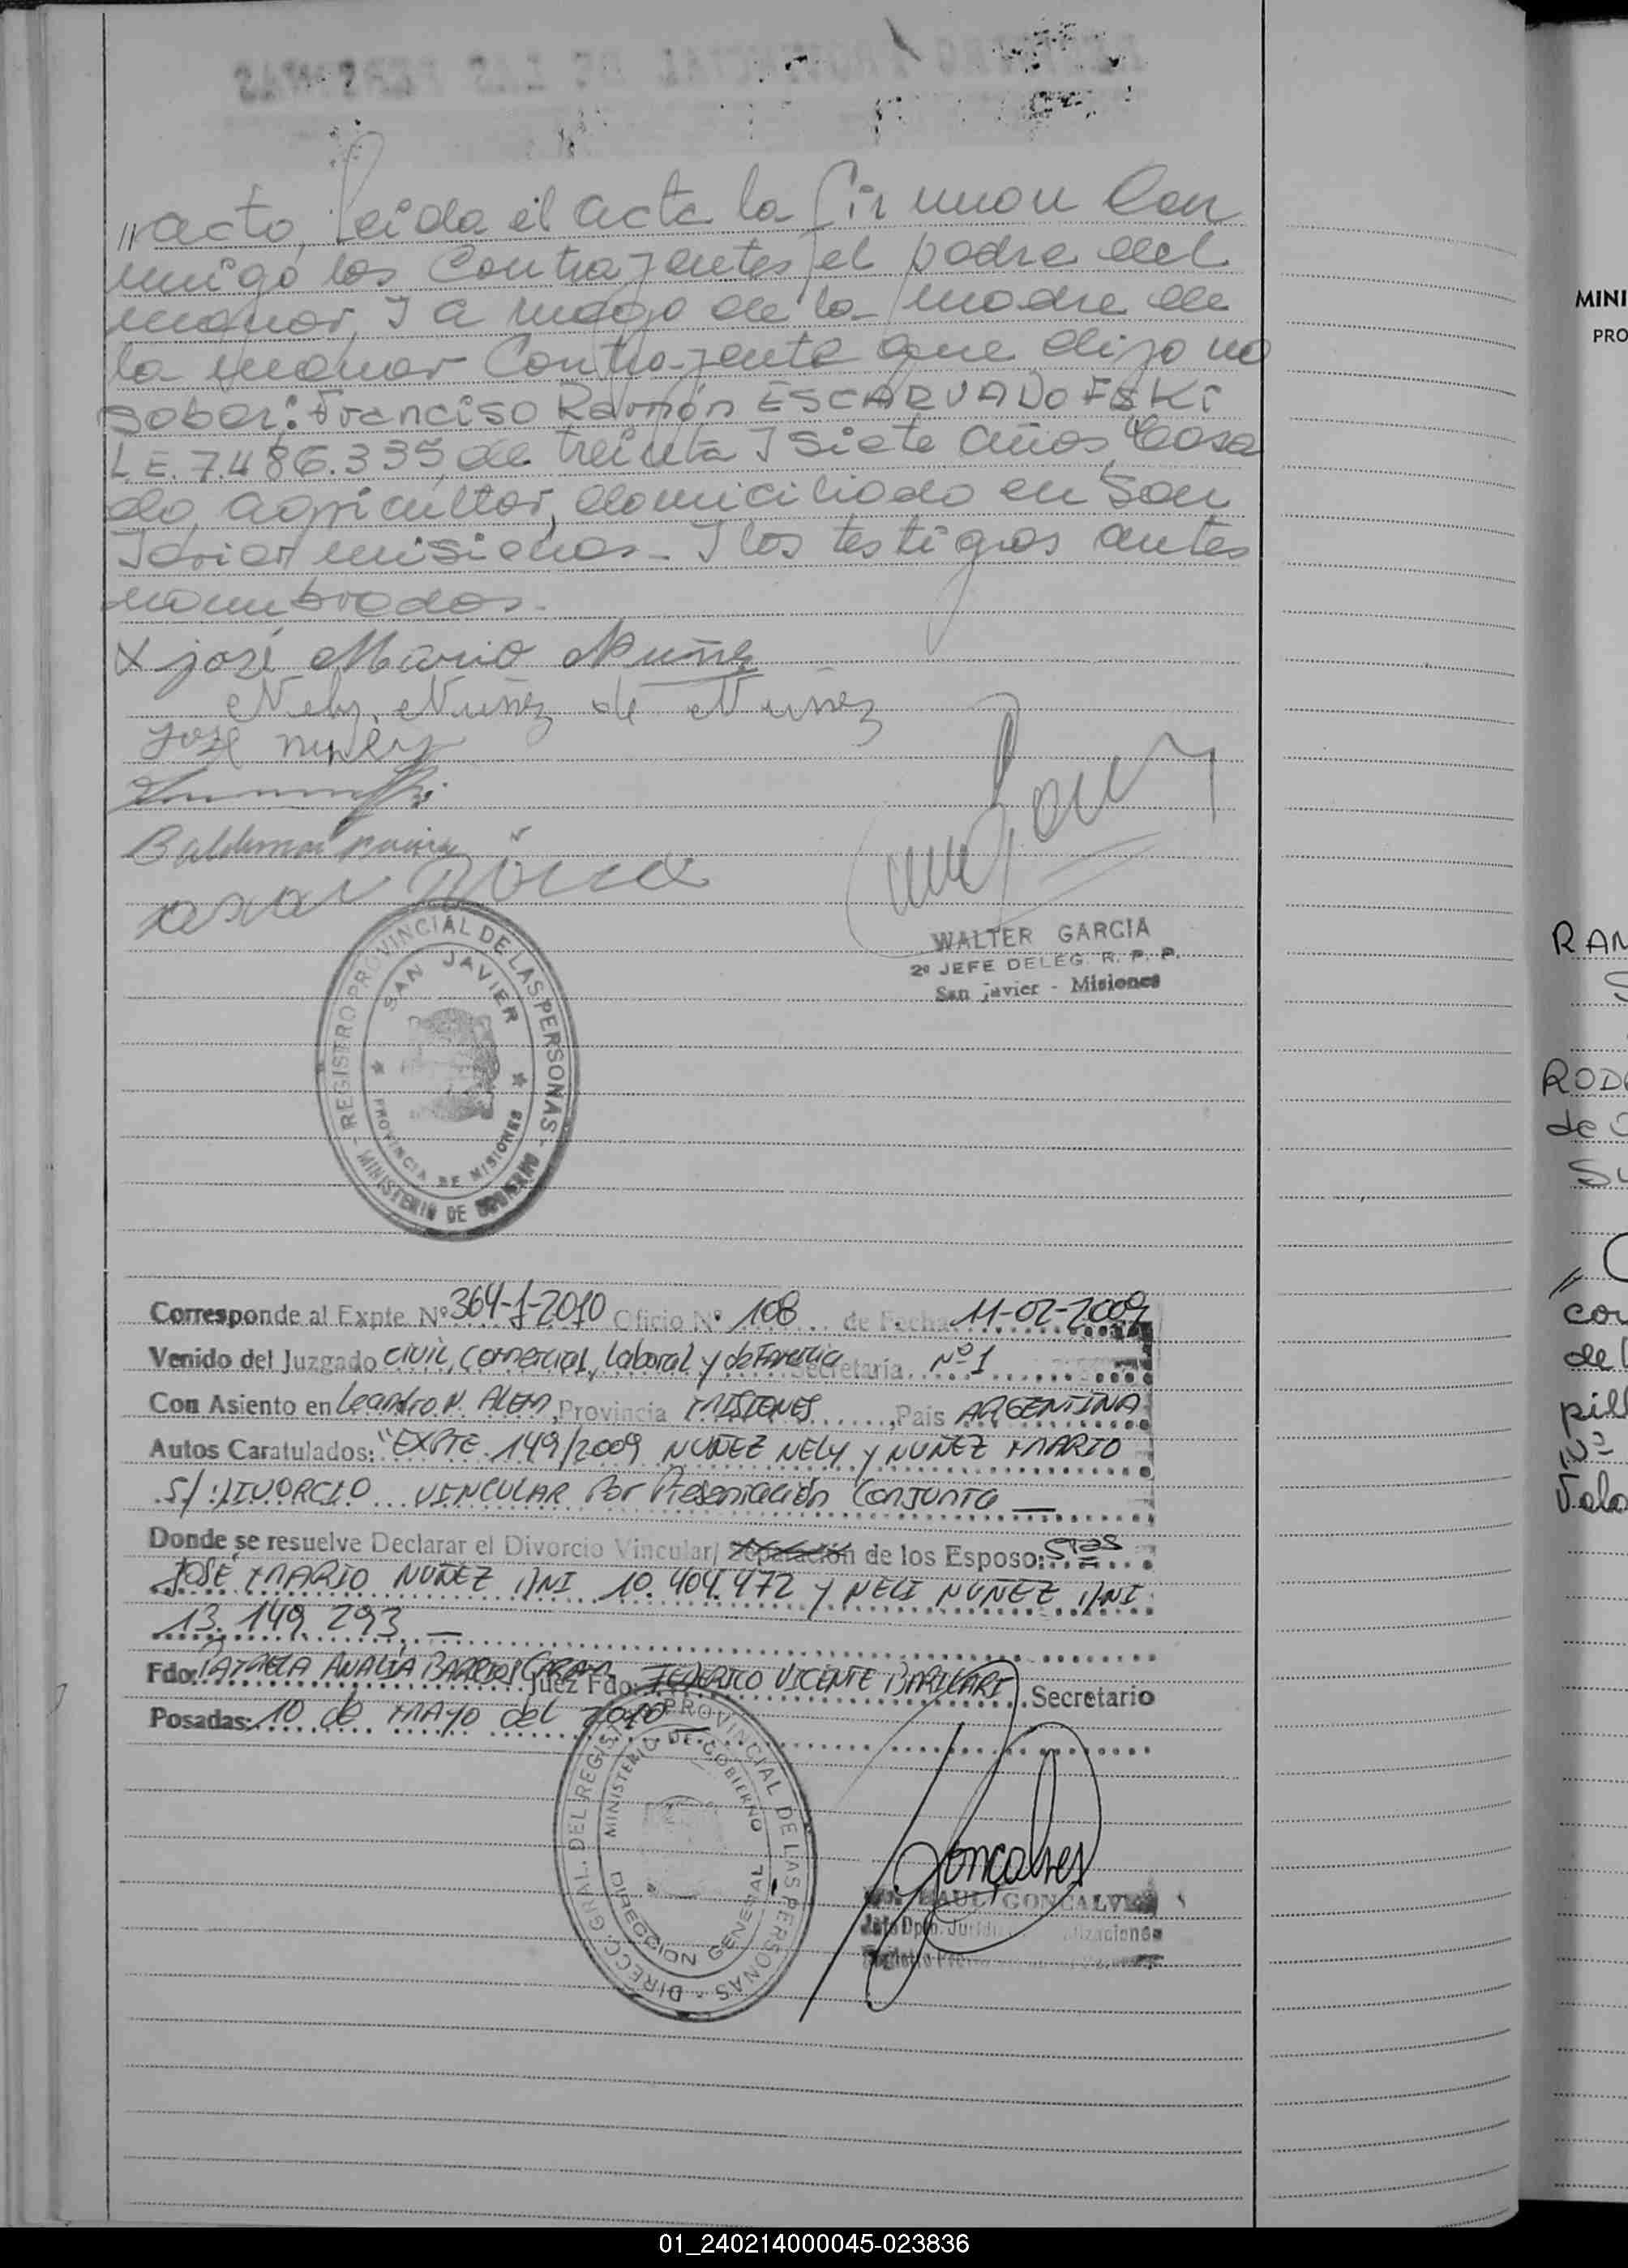 REGISTRO PROVINCIAL DE LAS PERSONAS
"acto, leida el acta la firman con
migo los Contrayentes, el padre del
menor, y a ruego de la madre de
la menor Contrayente que dijo no
saber: Franciso Ramón ESCARVADOFSKI
L.E. 7.486.335, de treinta y siete años, Casa
do, agricultor, domiciliado en San
Javier misiones - y los testigos antes
nombrados.-
X josé Mario Nuñez
Nely Nuñez de Nuñez
José nuñez
Baldemar
oscar
WALTER GARCIA
2º JEFE DELEG. R. P. P.
San javier - Misiones
REGISTRO PROVINCIAL DE LAS PERSONAS - MINISTERIO DE GOBIERNO -
SAN JAVIER
PROVINCIA DE MISIONES
Corresponde al Expte Nº 364-J-2010 Oficio Nº 108 de Fecha 11-02-2009
Venido del Juzgado Civil, Comercial, Laboral y de Familia Secretaria Nº 1
Con Asiento en Leandro N. Alem, Provincia MISIONES, País ARGENTINA
Autos Caratulados: "EXPTE. 149/2009 NUÑEZ NELY Y NUÑEZ MARIO
S/ DIVORCIO VINCULAR Por Presentación Conjunta —
Donde se resuelve Declarar el Divorcio Vincular/ Separación de los Esposo: Stas
JOSÉ MARIO NUÑEZ DNI 10.404.472 Y NELI NUÑEZ DNI
13.149.293. —
Fdo: ANALIA BARRIOS Juez Fdo: FEDERICO VICENTE Secretario
Posadas: 10 de MAYO del 2010 —
DIRECC. GRAL. DEL REGISTRO PROVINCIAL DE LAS PERSONAS -
MINISTERIO DE GOBIERNO
DIRECCION GENERAL
Goncalves
RAUL GONCALVES
MINI
PRO
RAM
RODR
de
Su
cou
de l
pill
Nº
Vala
01_240214000045-023836